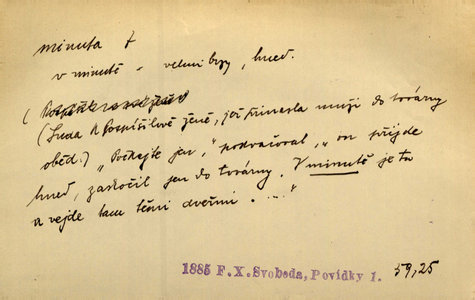 minuta f
v minutě = velmi brzy, hned.
(
(Luda k Pospíšilově ženě, jež přinesla muži do továrny
oběd:) „Počkejte jen," podvačoval, „on přijde
hned, zaskočil jen do továrny. V minutě je tu
a vejde tam těmi dveřmi. ...."
1885 F.X.Svoboda, Povídky 1. 59,25